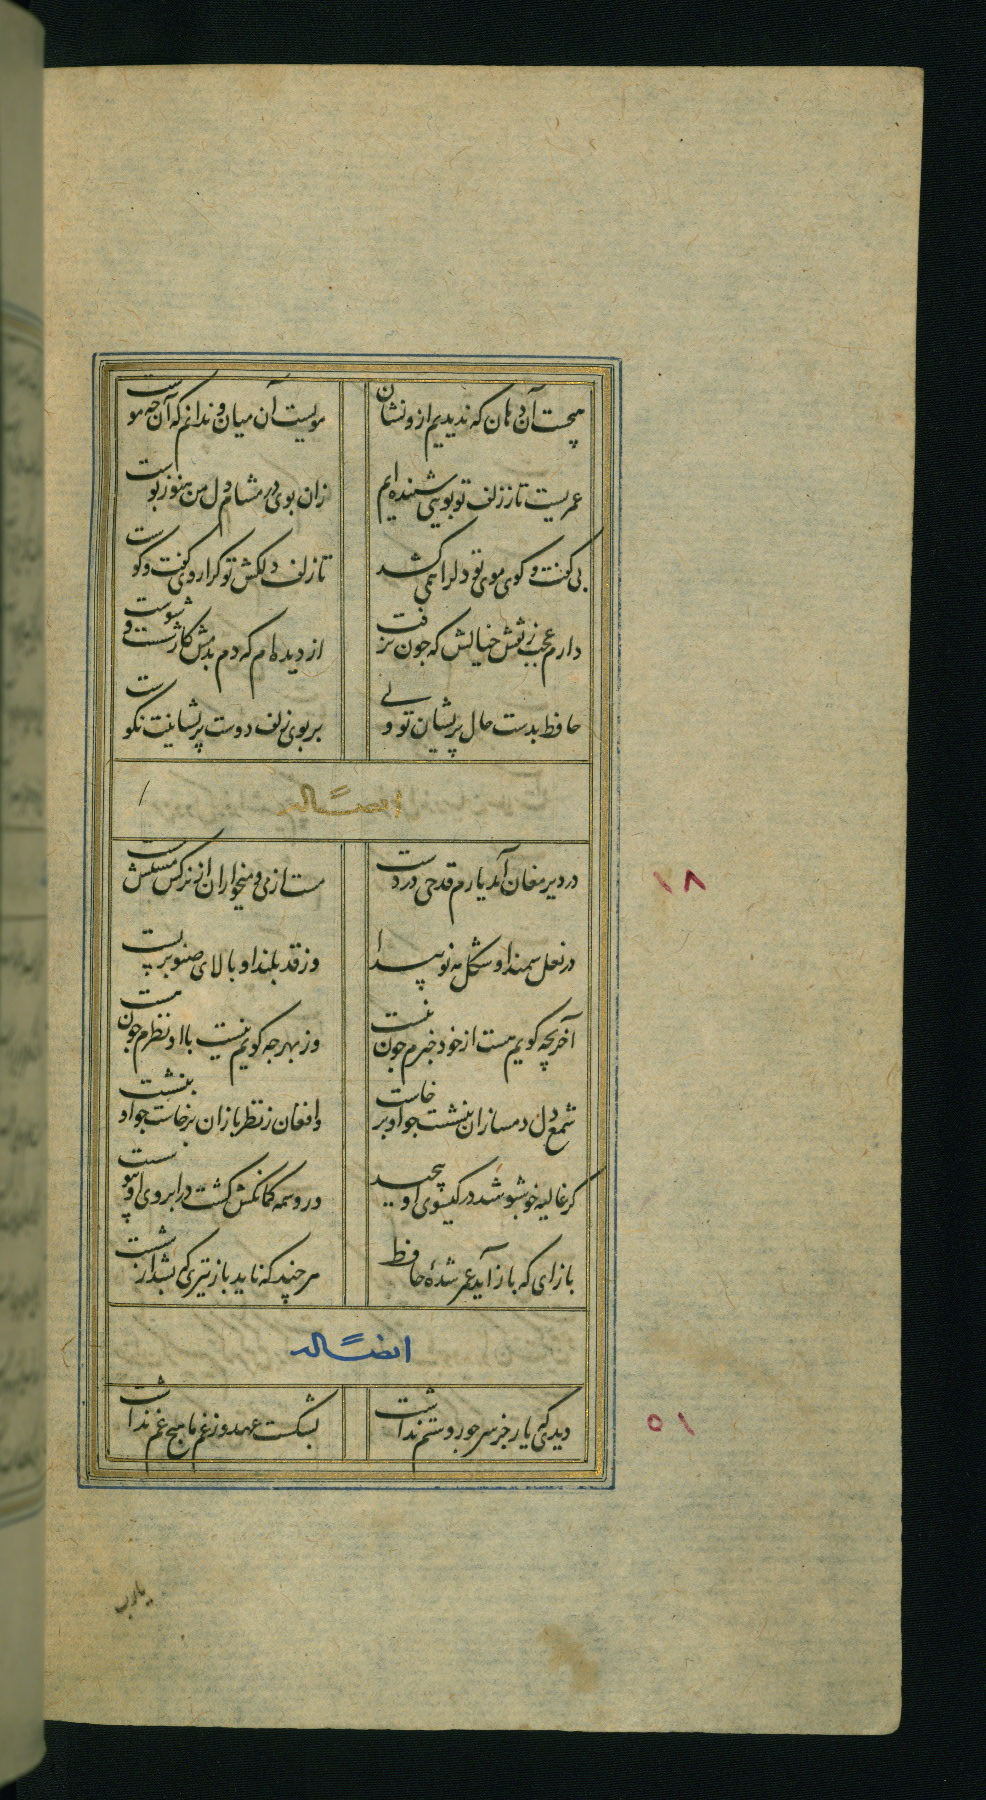 هیچست آن دهان که ندیدیم ازو نشان
مویست آن میان و ندانم که آن چه موست
عمریست تا ز زلف تو بویی شنیده ایم
زان بوی در مشام دل من هنوز بوست
بی گفت و گوی موی تو دل را همی کشد
تا زلف دلکش تو کرا روی گفت و گوست
دارم عجب ز نقش خیالش که چون نرفت
از دیده ام که دم بدمش کار شست و شوست
حافظ بدست حال پریشان تو ولی
بر بوی زلف دوست پریشانیت نکوست
ایضاً له
در دیر مغان آمد یارم قدحی در دست
مست از می و میخواران از نرگس مستش مست
۱۸
در نعل سمند او شکل مه نو پیدا
وز قد بلند او بالای صنوبر پست
آخر بچه گویم هست از خود خبرم چون نیست
وز بهر چه گویم نیست با او نظرم چون هست
شمع دل دمسازان بنشست چو او برخاست
و افغان ز نظربازان برخاست چو او بنشست
گر غالیه خوشبو شد در گیسوی او پیچید
ور وسمه کمانکش گشت در ابروی او پیوست
باز ای که باز آید عمر شدهٔ حافظ
هر چند که ناید باز تیری که بشد از شست
ایضاً له
دیدی که یار جز سر جور و ستم نداشت
بشکست عهد و ز غم ما هیچ غم نداشت
۵۱
یارب